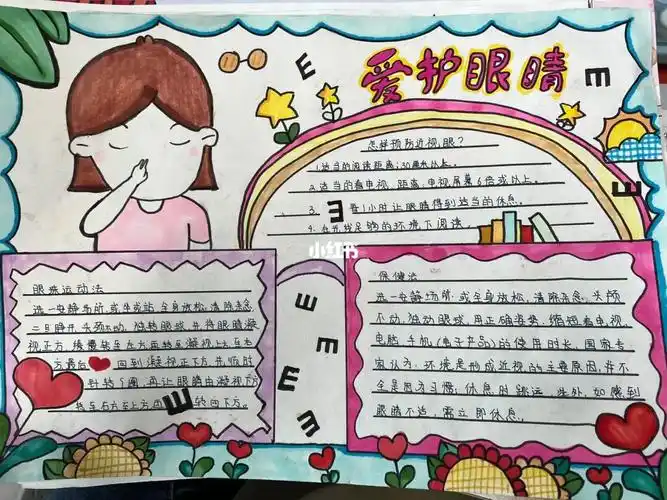 爱护眼睛
E
E
E
怎样预防近视眼?
1.适当的阅读距离:30厘米以上。
2.适当的看电视,距离:电视屏幕6倍或以上。
3. 看1小时让眼睛得到适当的休息。
4.在光线足够的环境下阅读。
E
小红书
眼珠运动法
选一安静场所,或坐或站,全身放松,清除杂念,
二目睁开,头颈不动,独转眼球,先将眼睛凝
视正下方,缓慢转至左方,再转至凝视上方,至右
方,最后 回到凝视正下方,
针转1圈,再让眼睛由凝视下方,
转至右方,至上方,再 转回下方。
E
E
E
E
E
保健法
选一安静场所,或全身放松,清除杂念,头颈
不动,独动眼球,用正确姿势,缩短看电视,
电脑,手机(电子产品)的使用时长,国家专
家认为,环境是形成近视的主要原因,并不
全是因为习惯,休息时 此外,如感到
眼睛不适,需立即休息。